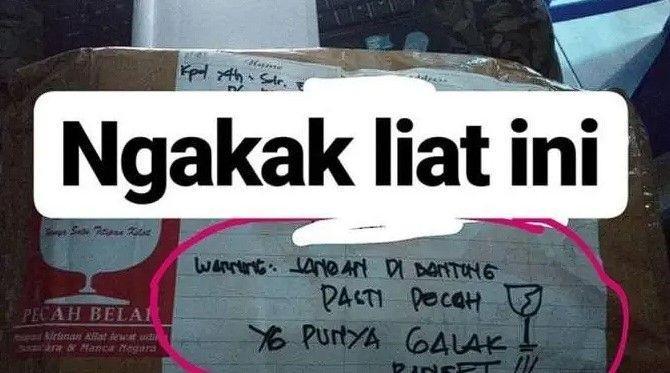 Kpd Yth. Sdr.
Ngakak liat ini
Hanya Satu Titipan Kilat
PECAH BELAH
Kiriman Kilat lewat udara
Nusantara & Manca Negara
WARNING: JANGAN DI BANTING
PASTI PECAH
YG PUNYA GALAK
BANGET !!!